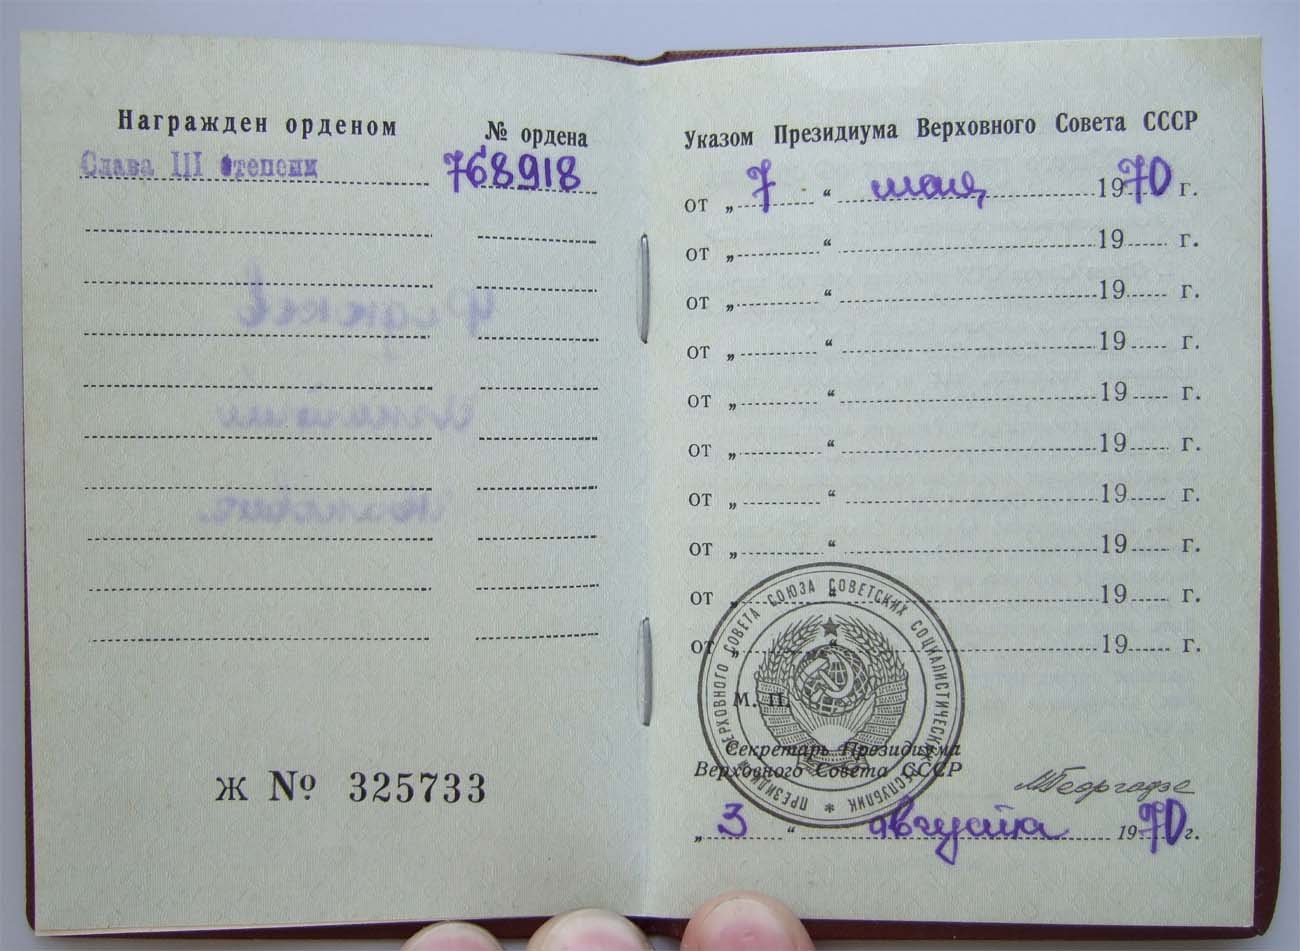 Награжден орденом
№ ордена
Слава III степени
768918
Ж № 325733
Указом Президиума Верховного Совета СССР
от „ 7 “ 1970 г.
от „ “ 19 г.
от „ “ 19 г.
от „ “ 19 г.
от „ “ 19 г.
от „ “ 19 г.
от „ “ 19 г.
от „ “ 19 г.
от „ “ 19 г.
от „ “ 19 г.
ПРЕЗИДИУМ ВЕРХОВНОГО СОВЕТА СОЮЗА СОВЕТСКИХ СОЦИАЛИСТИЧЕСКИХ РЕСПУБЛИК *
М. П.
Секретарь Президиума
Верховного Совета СССР
МГеоргадзе
„ 3 “ августа 1970 г.